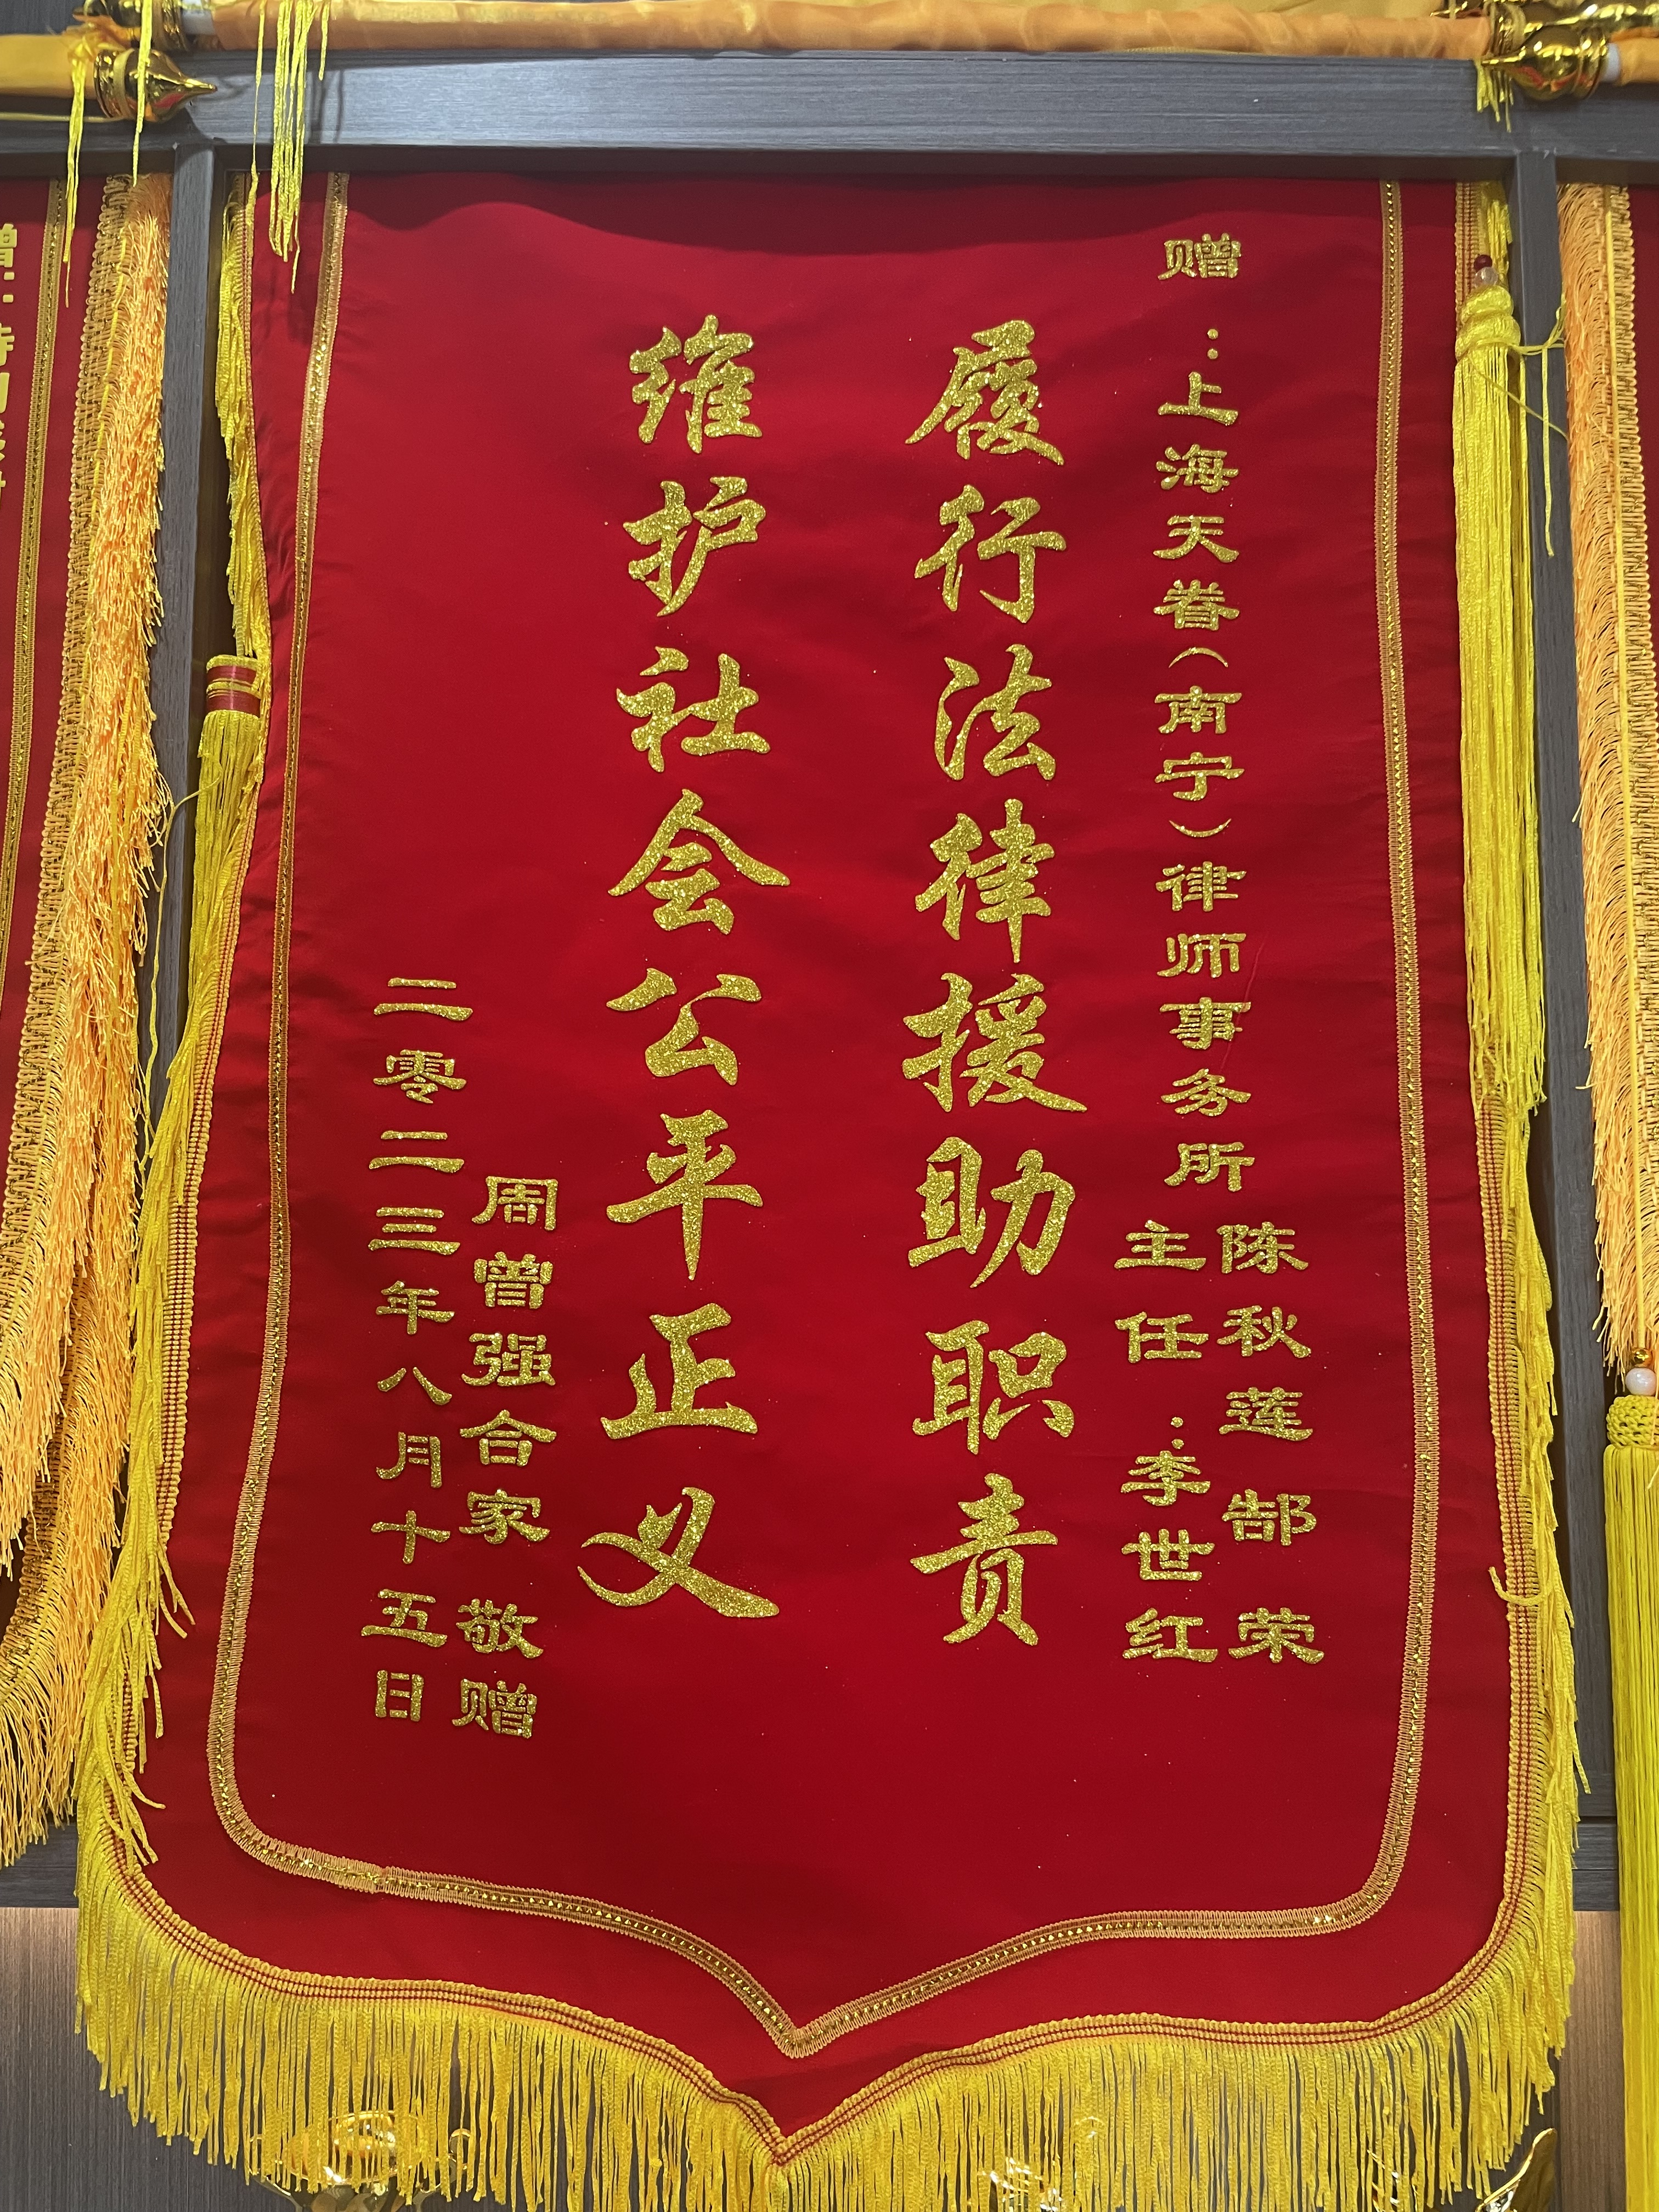 赠：上海天眷（南宁）律师事务所
陈秋莲 郜荣
主任：李世红
履行法律援助职责
维护社会公平正义
周曾强合家 敬赠
二零二三年八月十五日